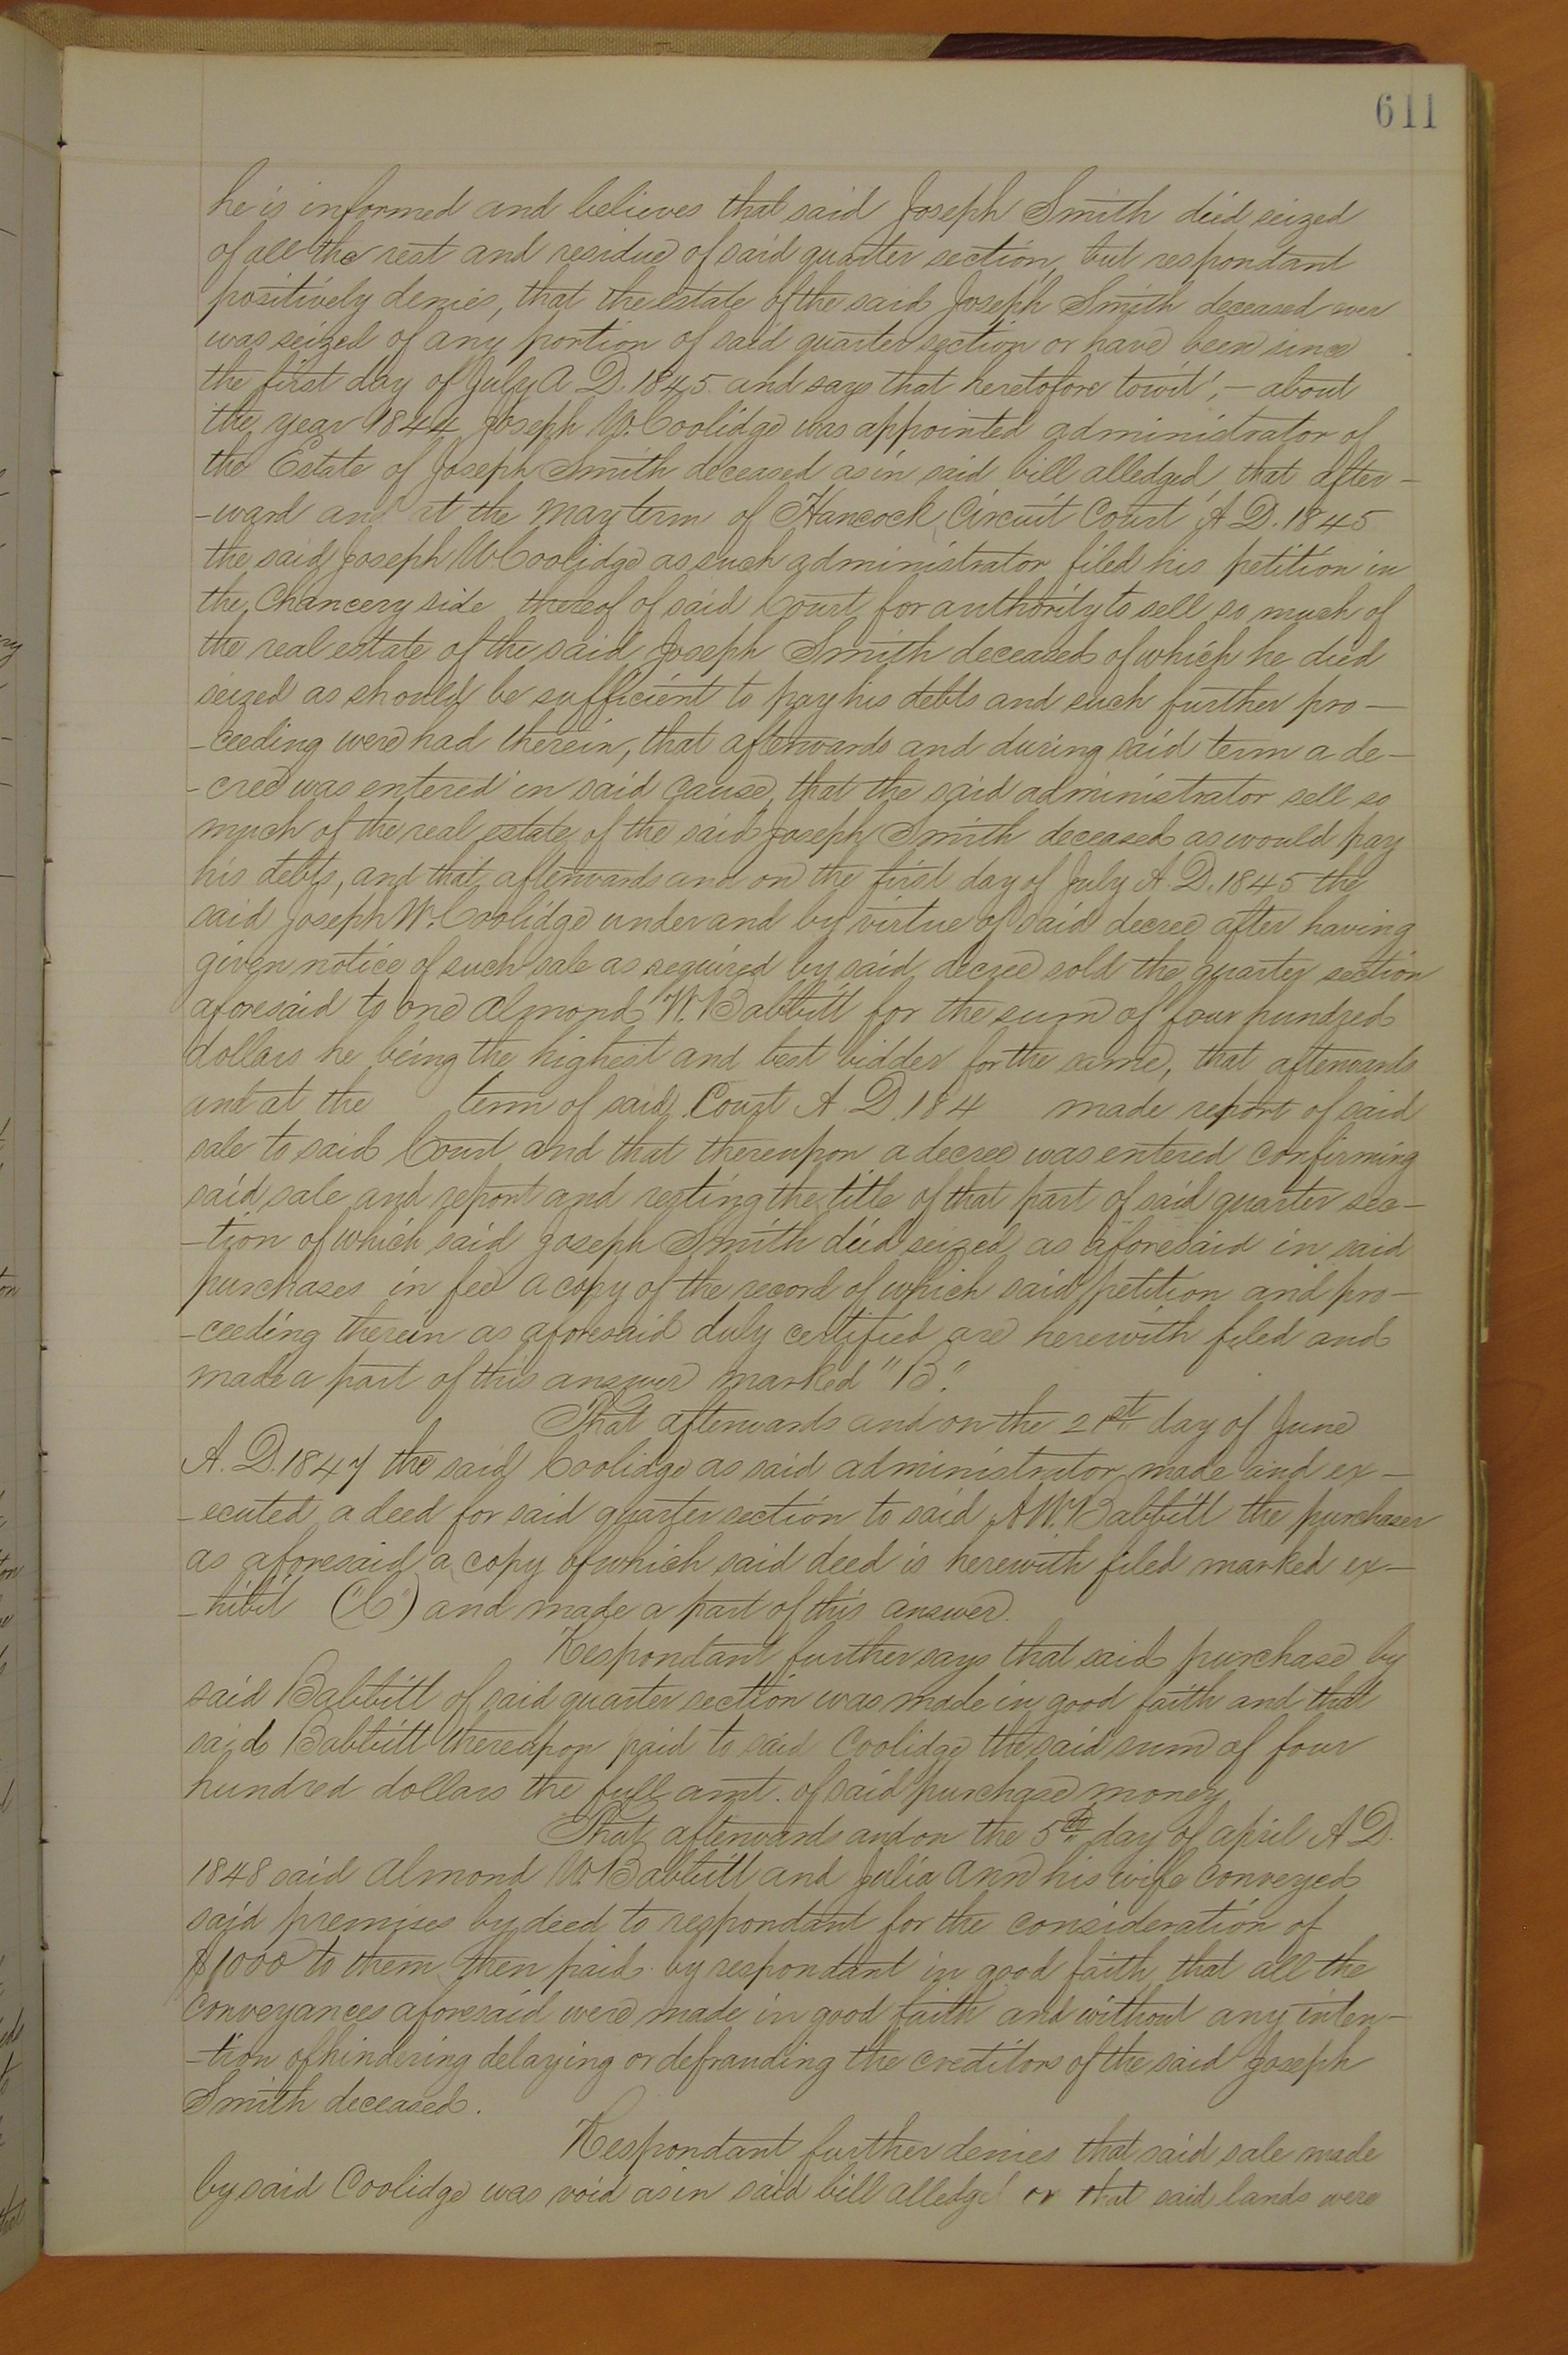 611
he is informed and believes that said Joseph Smith died seized
of all the rest and residue of said quarter section, but respondant
positively denies, that the estate of the said Joseph Smith deceased ever
was seized of any portion of said quarter section or have been since
the first day of July A D. 1845. and says that heretofore towit, — about
the year 1844 Joseph W. Coolidge was appointed administrator of
the Estate of Joseph Smith deceased as in said bill alledged, that after-
-ward and at the may term of Hancock Circuit Court A D. 1845
the said Joseph W Coolidge as such administrator filed his petition in
the Chancery side thereof of said Court for authority to sell so much of
the real estate of the said Joseph Smith deceased of which he died
seized as should be sufficient to pay his debts and such further pro-
-ceeding were had therein, that afterwards and during said term a de-
-cree was entered in said cause, that the said administrator sell so
much of the real estate of the said Joseph Smith deceased as would pay
his debts, and that afterwards and on the first day of July A. D. 1845 the
said Joseph W. Coolidge under and by virtue of said decree after having
given notice of such sale as required by said decree sold the quarter section
aforesaid to one Almond W. Babbitt for the sum of four hundred
dollars he being the highest and best bidder for the same, that afterwards
and at the term of said Court A. D. 184 made report of said
sale to said Court and that thereupon a decree was entered confirming
said sale and report and vesting the title of that part of said quarter sec-
-tion of which said Joseph Smith died seized as aforesaid in said
purchases in fee a copy of the record of which said petition and pro-
-ceeding therein as aforesaid duly certified are herewith filed and
made a part of this answer marked "B".
That afterwards and on the 21st day of June
A. D. 1847 the said Coolidge as said administrator made and ex-
-ecuted a deed for said quarter section to said A W. Babbitt the purchaser
as aforesaid a copy of which said deed is herewith filed marked ex-
-hibit ("C") and made a part of this answer.
Respondant further says that said purchase by
said Babbitt of said quarter section was made in good faith and that
said Babbitt thereupon paid to said Coolidge the said sum of four
hundred dollars the full amt. of said purchase money
That afterwards and on the 5th day of april A D.
1848 said Almond W. Babbitt and Julia Ann his wife conveyed
said premises by deed to respondant for the consideration of
$1000 to them then paid by respondant in good faith that all the
conveyances aforesaid were made in good faith and without any inten-
-tion of hindering delaying or defrauding the creditors of the said Joseph
Smith deceased.
Respondant further denies that said sale made
by said Coolidge was void as in said bill alledged or that said lands were